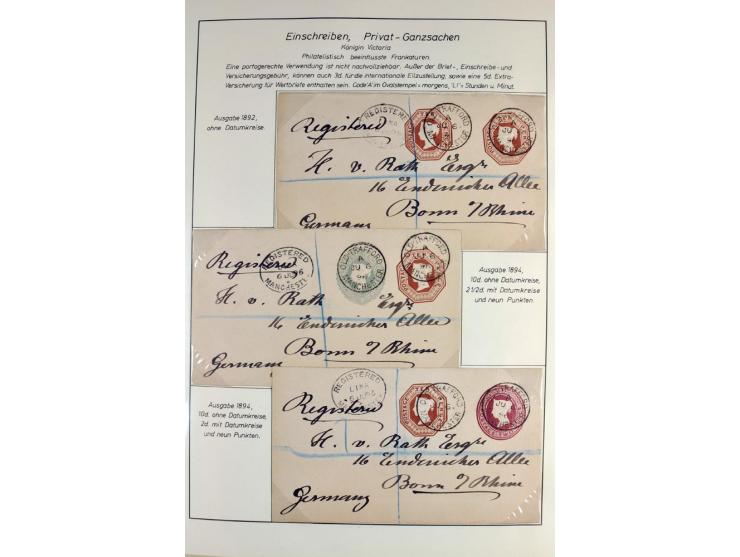 Einschreiben, Privat-Ganzsachen
Königin Victoria
Philatelistisch beeinflusste Frankaturen.
Eine portogerechte Verwendung ist nicht nachvollziehbar. Außer der Brief-, Einschreibe- und
Versicherungsgebühr, können auch 3d. für die internationale Eilzustellung, sowie eine 5d. Extra-
Versicherung für Wertbriefe enthalten sein. Code 'A' im Ovalstempel = morgens, 'L1' = Stunden u. Minut.
Ausgabe 1892,
ohne Datumkreise.
REGISTERED
Registered
H. v. Rath Esqre
16 Endenicher Allee
Bonn o/Rhine
Germany
REGISTERED
6 JU 96
MANCHESTER
OLD TRAFFORD
A
JU 6
96
MANCHESTER
OLD TRAFFORD
Registered
H. v. Rath Esqre
16 Endenicher Allee
Bonn o/Rhine
Germany
Ausgabe 1894,
10d. ohne Datumkreise,
2 1/2d. mit Datumkreise
und neun Punkten.
Ausgabe 1894,
10d. ohne Datumkreise,
2d. mit Datumkreise
und neun Punkten.
REGISTERED
Registered
H. v. Rath Esqre
16 Endenicher Allee
Bonn o/Rhine
Germany